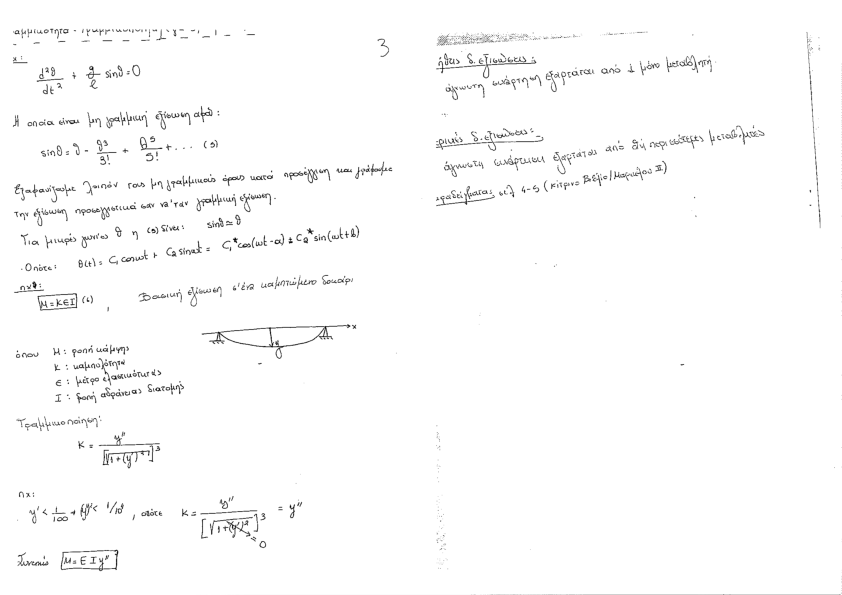 3
d²θ/dt² + g/l sinθ = 0
Η οποία είναι μη γραμμική εξίσωση αφού:
sinθ = θ - θ³/3! + θ⁵/5! + ... (5)
Εξαφανίζουμε λοιπόν τους μη γραμμικούς όρους κατά προσέγγιση και γράφουμε
την εξίσωση προσεγγιστικά σαν να'ταν γραμμική εξίσωση.
Για μικρές γωνίες θ η (5) δίνει: sinθ ≃ θ
Οπότε: θ(t) = C₁ cosωt + C₂ sinωt = C₁* cos(ωt-α) ± C₂* sin(ωt+β)
πχ:
M = KEI (6) , Βασική εξίσωση σ'ένα καμπτώμενο δοκάρι
x
y
όπου M : ροπή κάμψης
K : καμπυλότητα
E : μέτρο ελαστικότητας
I : ροπή αδράνειας διατομής
Γραμμικοποίηση:
K = y'' / [√1+(y')²]³
πχ:
y' < 1/100 → (y')² < 1/10⁴ , οπότε K = y'' / [√1+(y')²]³ = y''
= 0
Συνεπώς M = E I y''
ήθεις δ. εξισώσεις:
άγνωστη συνάρτηση εξαρτάται από 1 μόνο μεταβλητή.
ερικές δ. εξισώσεις:
άγνωστη συνάρτηση εξαρτάται από δύο ή περισσότερες μεταβλητές
αραδείγματα: σελ 4-5 (κίτρινο Βιβλίο/Μαρκάτου II)